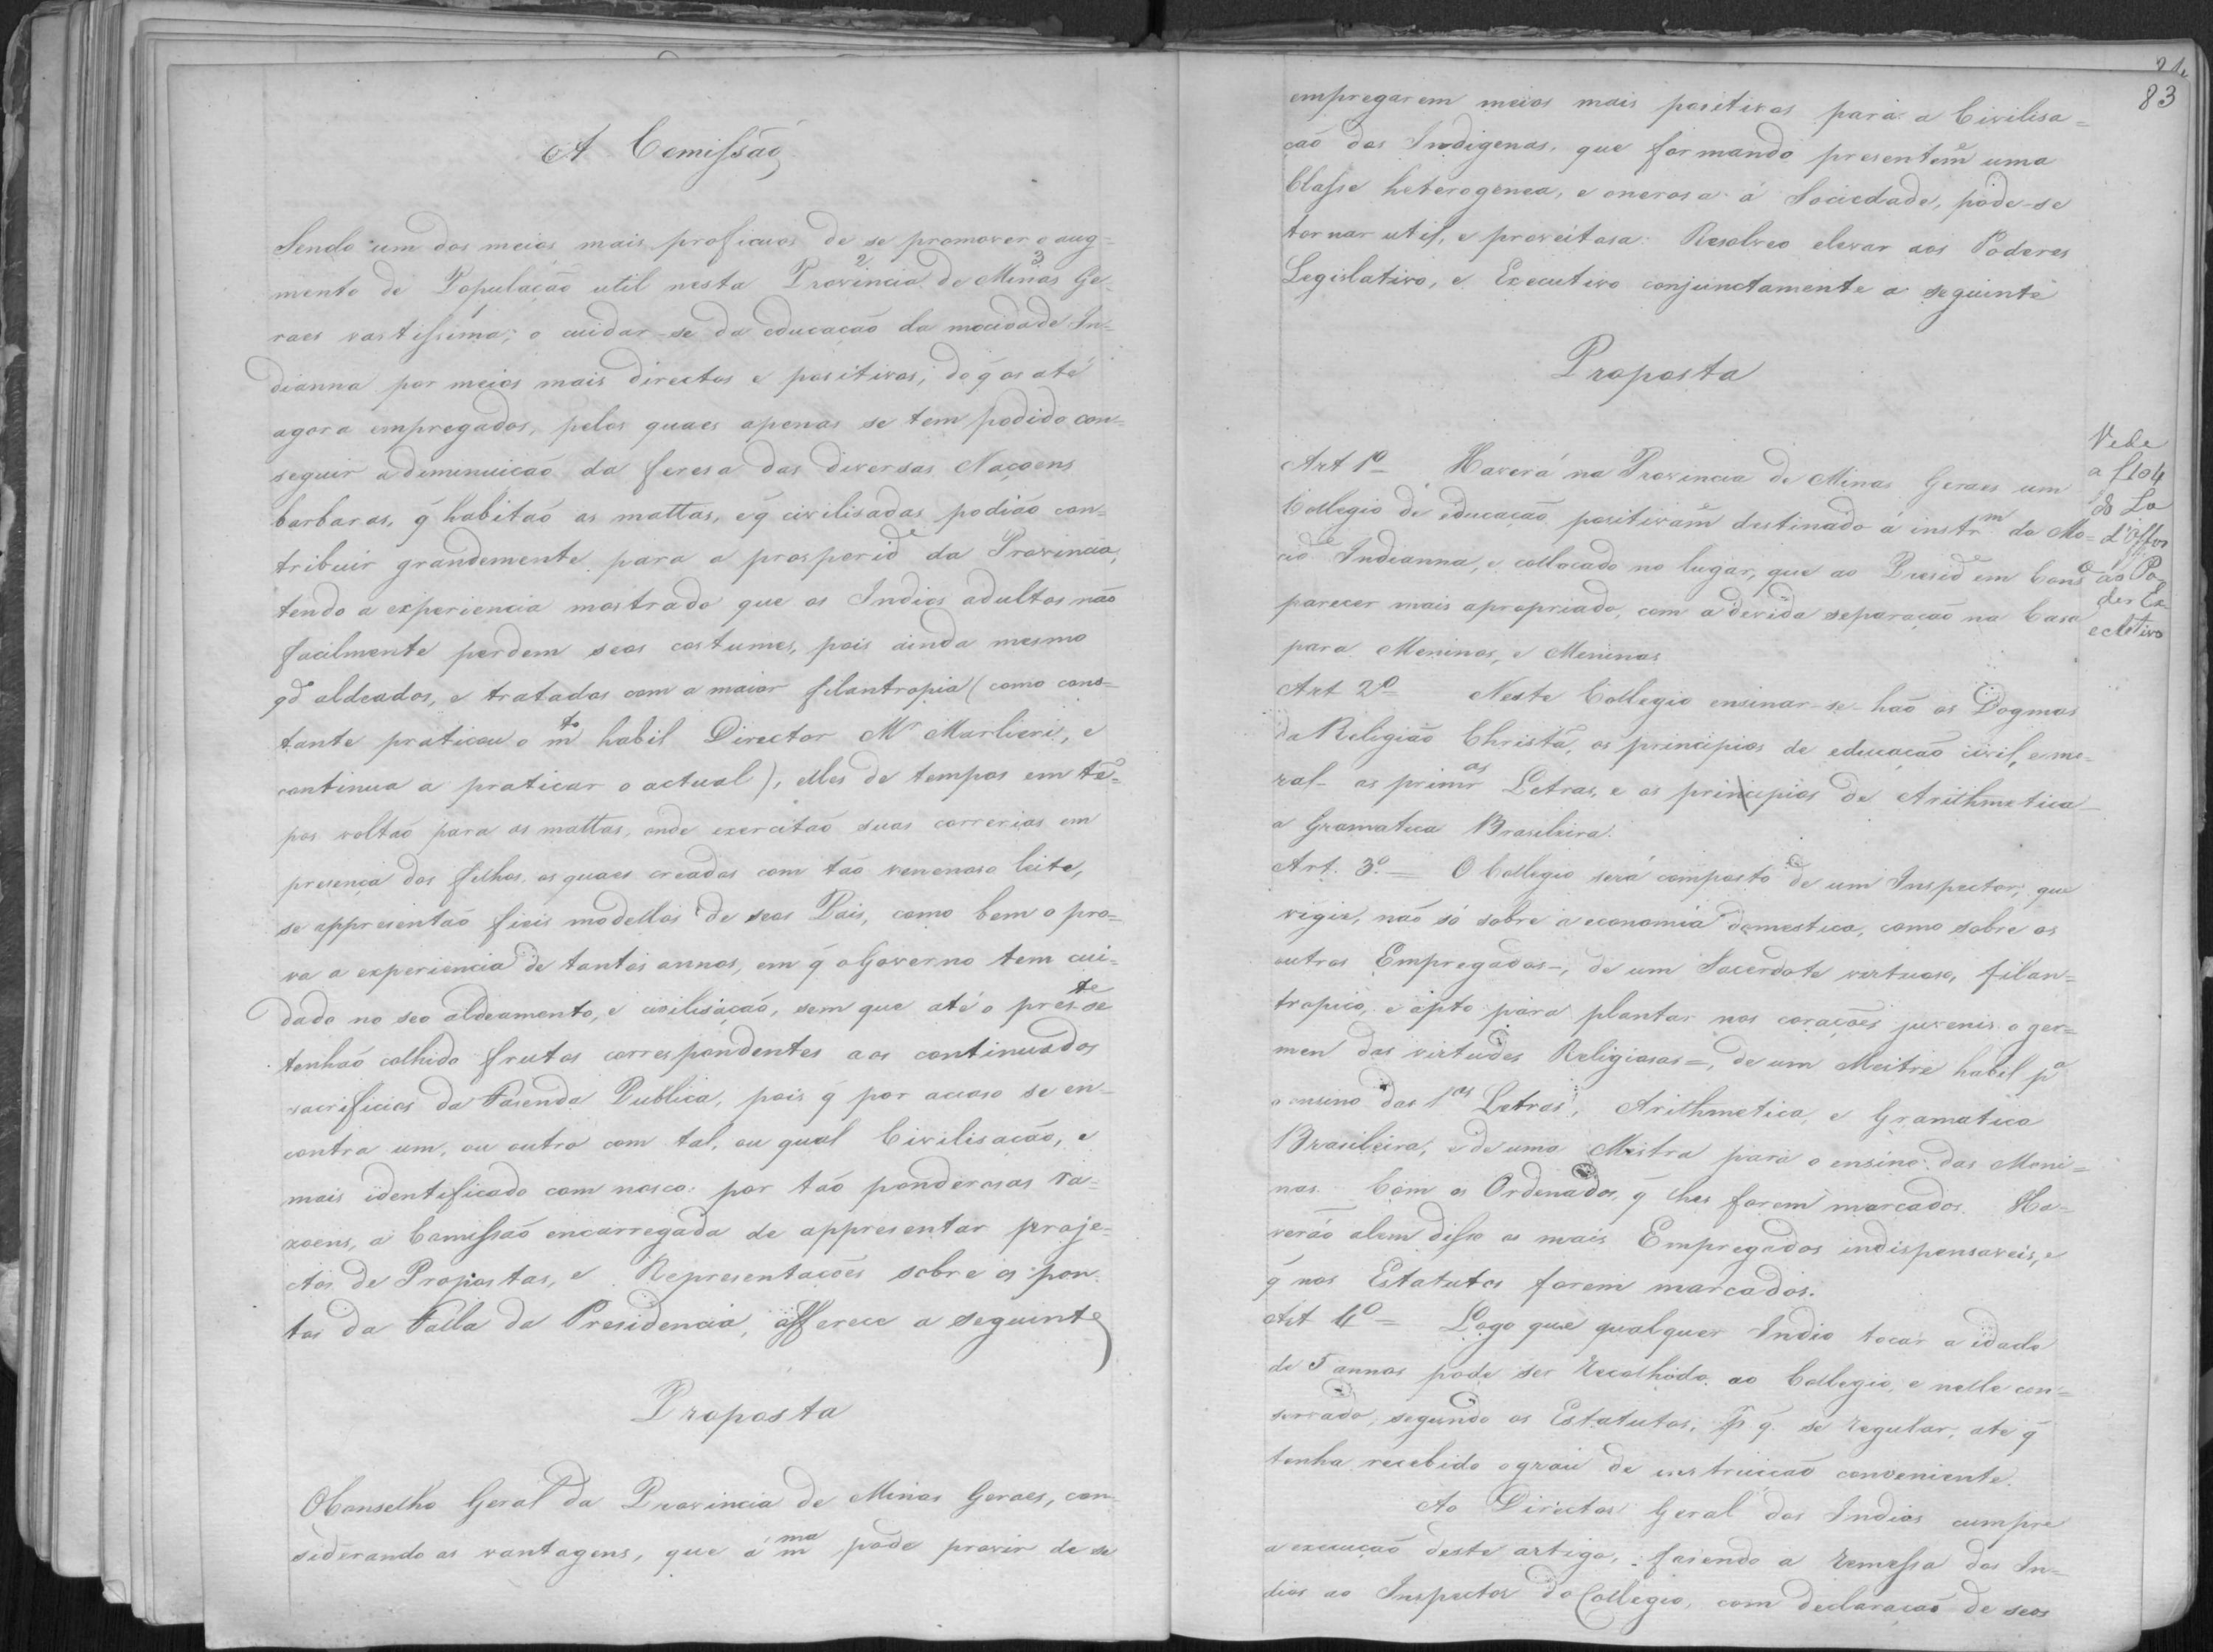 A Comissão
Sendo um dos meios mais proficuos de se promover o aug=
mento de População util nesta Provincia de Minas Ge-
raes vastissima; o cuidar-se da educacaõ da mocidade In=
dianna por meios mais directos e positivos; do q̃ os até
agora empregados, pelos quaes apenas se tem podido con=
seguir a diminuicaõ da feresa das diversas Naçoens
barbaras, q̃ habitaõ as mattas, e q̃ civilisadas podiaõ con=
tribuir grandemente para a prosperid.e da Provincia,
tendo a experiencia mostrado que os Indios adultos naõ
facilmente perdem seos costumes, pois ainda mesmo
qd.o aldeados, e tratados com a maior filantropia (como cons=
tante praticou o m.to habil Director Mr Marlieri, e
continua a praticar o actual), elles de tempos em tẽ=
pos voltaõ para as mattas, onde exercitaõ suas correrias em
presença dos filhos, os quaes creados com taõ venenoso leite,
se appresentaõ fieis modellos de seos Pais, como bem o pro=
va a experiencia de tantos annos, em q̃ o Governo tem cui=
dado no seo aldeamento, e civilisaçaõ, sem que até o pres.te se
tenhaõ colhido frutos correspondentes aos continuados
sacrificios da Fasenda Publica, pois q̃ por acaso se en-
contra um, ou outro com tal, ou qual Civilisacaõ, e
mais identificado com nosco: por taõ ponderosas ra=
zoens, a Comissaõ encarregada de appresentar proje-
ctos de Propostas, e Representacões sobre os pon-
tos da Falla da Presidencia, offerece a seguinte
Proposta
O Conselho Geral da Provincia de Minas Geraes, con-
siderando as vantagens, que á m.ma pode provir de se
83
empregarem meios mais positivos para a Civilisa=
çaõ dos Indigenas, que formando presentem.e uma
Classe heterogenea, e onerosa á Sociedade, pode-se
tornar util, e proveitosa: Resolveo elevar aos Poderes
Legislativo, e Executivo conjunctamente a seguinte
Proposta
Art 1º Haverá na Provincia de Minas Geraes um
Collegio de educacaõ positivam.e destinado á instr.m da Mo=
cid.e Indianna, e collocado no lugar, que ao Presid.e em Cons.o
parecer mais apropriado, com a devida separaçaõ na Casa
para Meninos, e Meninas
Vede
a f 104
do Lo
d'Offos
ao Po
der Ex
ecutivo
Art 2º Neste Collegio ensinar-se-haõ os Dogmas
da Religiaõ Christã, os principios de educaçaõ civil, e mo=
ral- as primr.as Letras, e os principios de Arithmetica-
a Gramatica Brasileira.
Art. 3º.= O Collegio será composto de um Inspector, que
vigie, naõ só sobre a economia domestica, como sobre os
outros Empregados-, de um Sacerdote virtuoso, filan=
tropico, e apto para plantar nos corações juvenis o ger=
men das virtudes Religiosas=, de um Meitre habil p.a
o ensino das 1.as Letras, Arithmetica, e Gramatica
Brasileira, e de uma Mestra para o ensino das Meni=
nas. Com os Ordenados, q̃ lhes forem marcados. Ha=
veráõ alem disso os mais Empregados indispensaveis, e
q̃ nos Estatutos forem marcados.
Art 4º = Logo que qualquer Indio tocar a idade
de 5 annos pode ser recolhido ao Collegio, e nelle con=
servado, segundo os Estatutos, p.r q̃ se regular, até q̃
tenha recebido o grau de instruccaõ conveniente.
Ao Director Geral dos Indios cumpre
a execuçaõ deste artigo, fasendo a remessa dos In=
dios ao Inspector do Collegio, com declaracaõ de seos